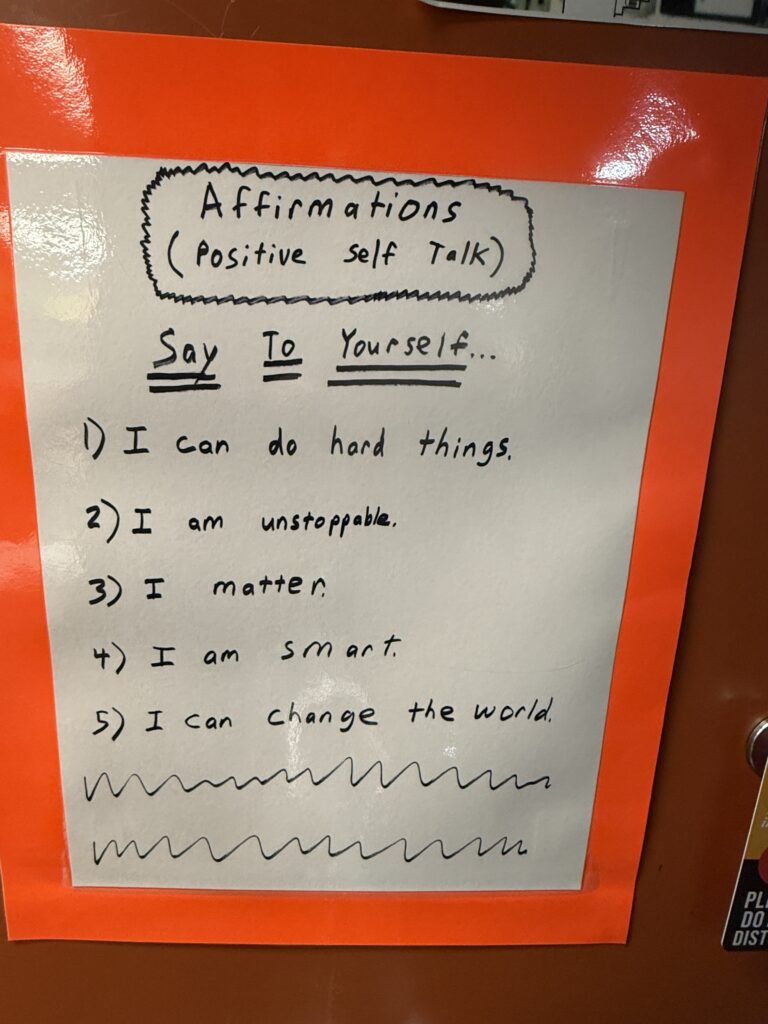 Affirmations
(Positive Self Talk)
Say To Yourself...
1) I can do hard things.
2) I am unstoppable.
3) I matter.
4) I am smart.
5) I can change the world.